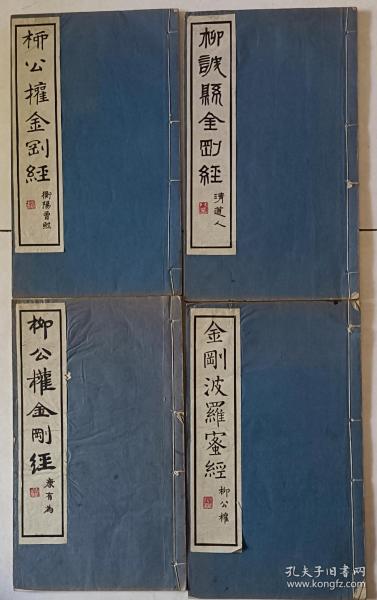 柳公權金剛經
衡陽曾熙
柳誠懸金剛經
清道人
柳公權金剛經
康有為
金剛波羅蜜經
柳公權
孔夫子旧书网
www.kongfz.com